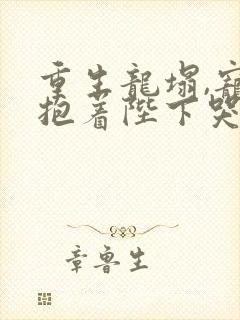 重生龍塌,寵
抱着陛下哭
章魯生